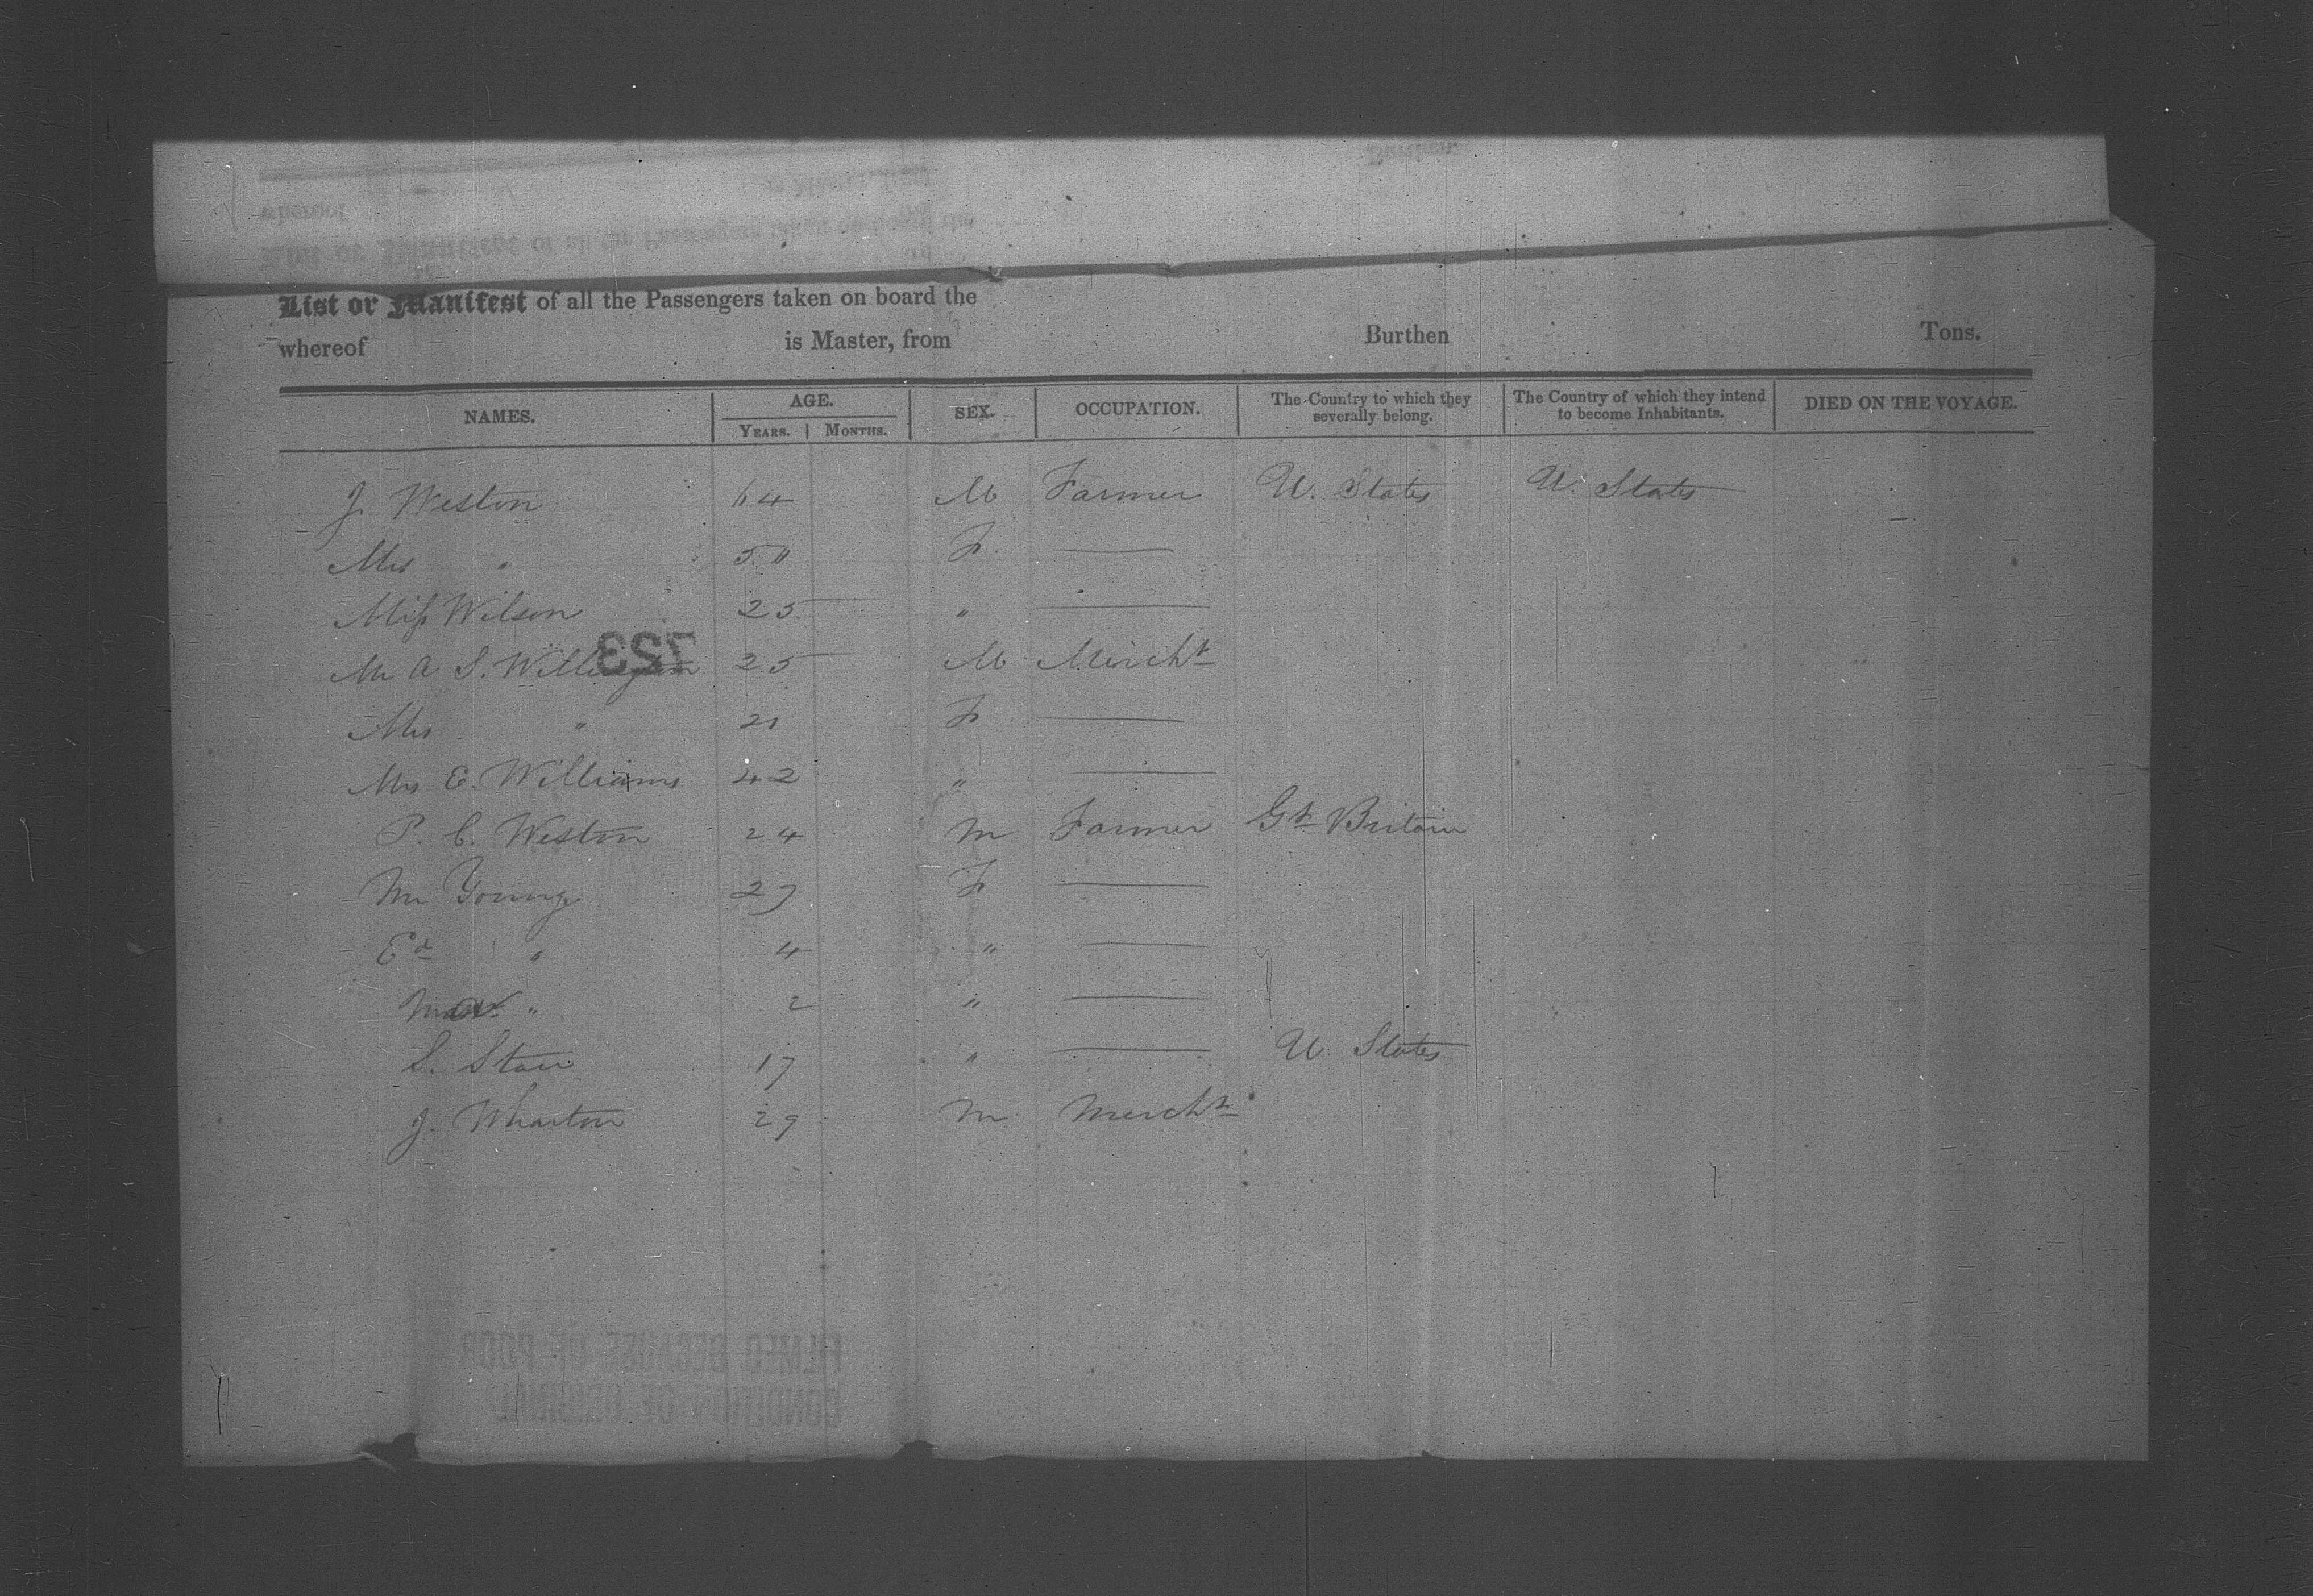 List or Manifest of all the Passengers taken on board the
whereof is Master, from Burthen Tons.
NAMES. AGE. SEX. OCCUPATION. The Country to which they severally belong. The Country of which they intend to become Inhabitants. DIED ON THE VOYAGE.
YEARS. MONTHS.
J. Weston 64 M Farmer U. States U. States
Mrs " 50 F. —
Miss Wilson 25 " —
Mr A S. 25 M Mercht
723
Mrs " 21 F —
Mrs E. Williams 42 " —
P. C. Weston 24 M Farmer Gt Britain
Young 27 F —
Ed " 4 " —
" 2 " —
S. 17 " — U. States
J. Wharton 29 M Mercht
FILMED BECAUSE OF POOR
CONDITION OF ORIGINAL